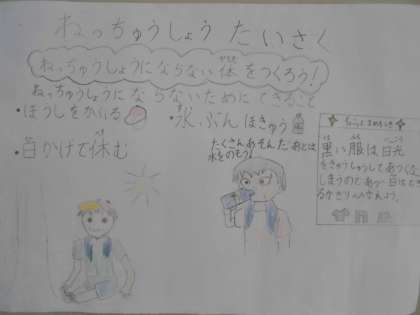 ねっちゅうしょう たいさく
ねっちゅうしょうにならない体をつくろう!
ねっちゅうしょうにならないためにできること
・ぼうしをかぶる
・水ぶんほきゅう
たくさんあそんだあとは
水をのもう!
・日かげで休む
黒い服は日光
をきゅうしゅうしてあつくな
しまうので